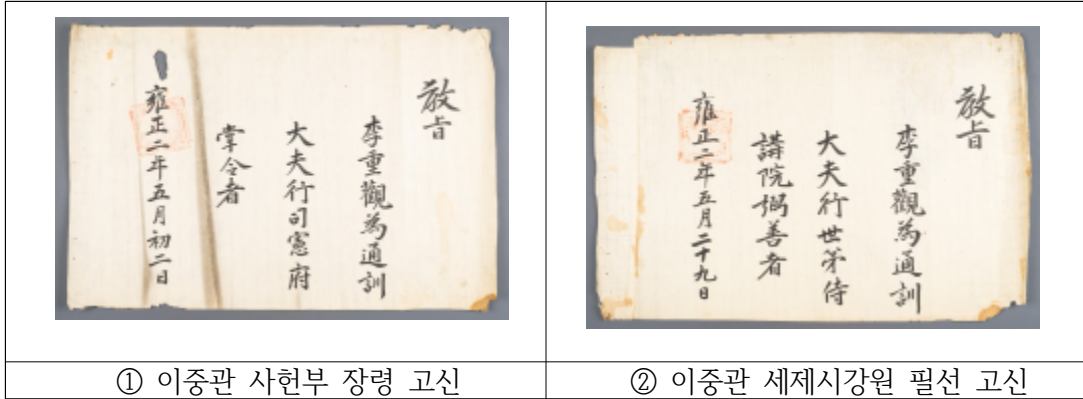 敎旨
李重觀爲通訓
大夫行司憲府
掌令者
雍正二年五月初二日
敎旨
李重觀爲通訓
大夫行世弟侍
講院弼善者
雍正二年五月二十九日
① 이중관 사헌부 장령 고신
② 이중관 세제시강원 필선 고신